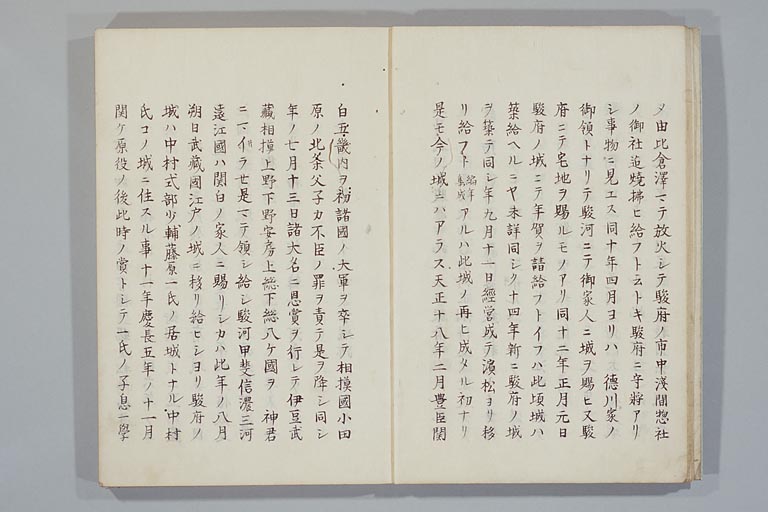 メ由比倉澤マテ放火シテ駿府ノ市中淺間惣社
ノ御社迄燒拂ヒ給フト云トキ駿府ニ守將アリ
シ事物ニ見エス同十年四月ヨリハ 德川家ノ
御領トナリテ駿河ニテ御家人ニ城ヲ賜ヒ又駿
府ニテ宅地ヲ賜ルモノアリ同十二年正月元日
駿府ノ城ニテ年賀ヲ請給フトイフハ此頃城ハ
築給ヘルニヤ未詳同シク十四年新ニ駿府ノ城
ヲ築テ同シ年九月十一日經營成テ濱松ヨリ移
リ給フト編年集成アルハ此城ノ再ヒ成タル初ナリ
是モ今ノ城ニハアラス天正十八年二月豐臣關
白五畿内ヲ初諸國ノ大軍ヲ卒シテ相摸國小田
原ノ北条父子カ不臣ノ罪ヲ責テ是ヲ降シ同シ
年ノ七月十三日諸大名ニ恩賞ヲ行レテ伊豆武
藏相摸上野下野安房上総下総八ケ國ヲ 神君
ニマイラセ是マテ領シ給シ駿河甲斐信濃三河
遠江國ハ關白ノ家人ニ賜リシカハ此年ノ八月
朔日武藏國江戸ノ城ニ移リ給ヒシヨリ駿府ノ
城ハ中村式部少輔藤原一氏ノ居城トナル中村
氏コノ城ニ住スル事十一年慶長五年ノ十一月
関ケ原役ノ後此時ノ賞トシテ一氏ノ子息一學